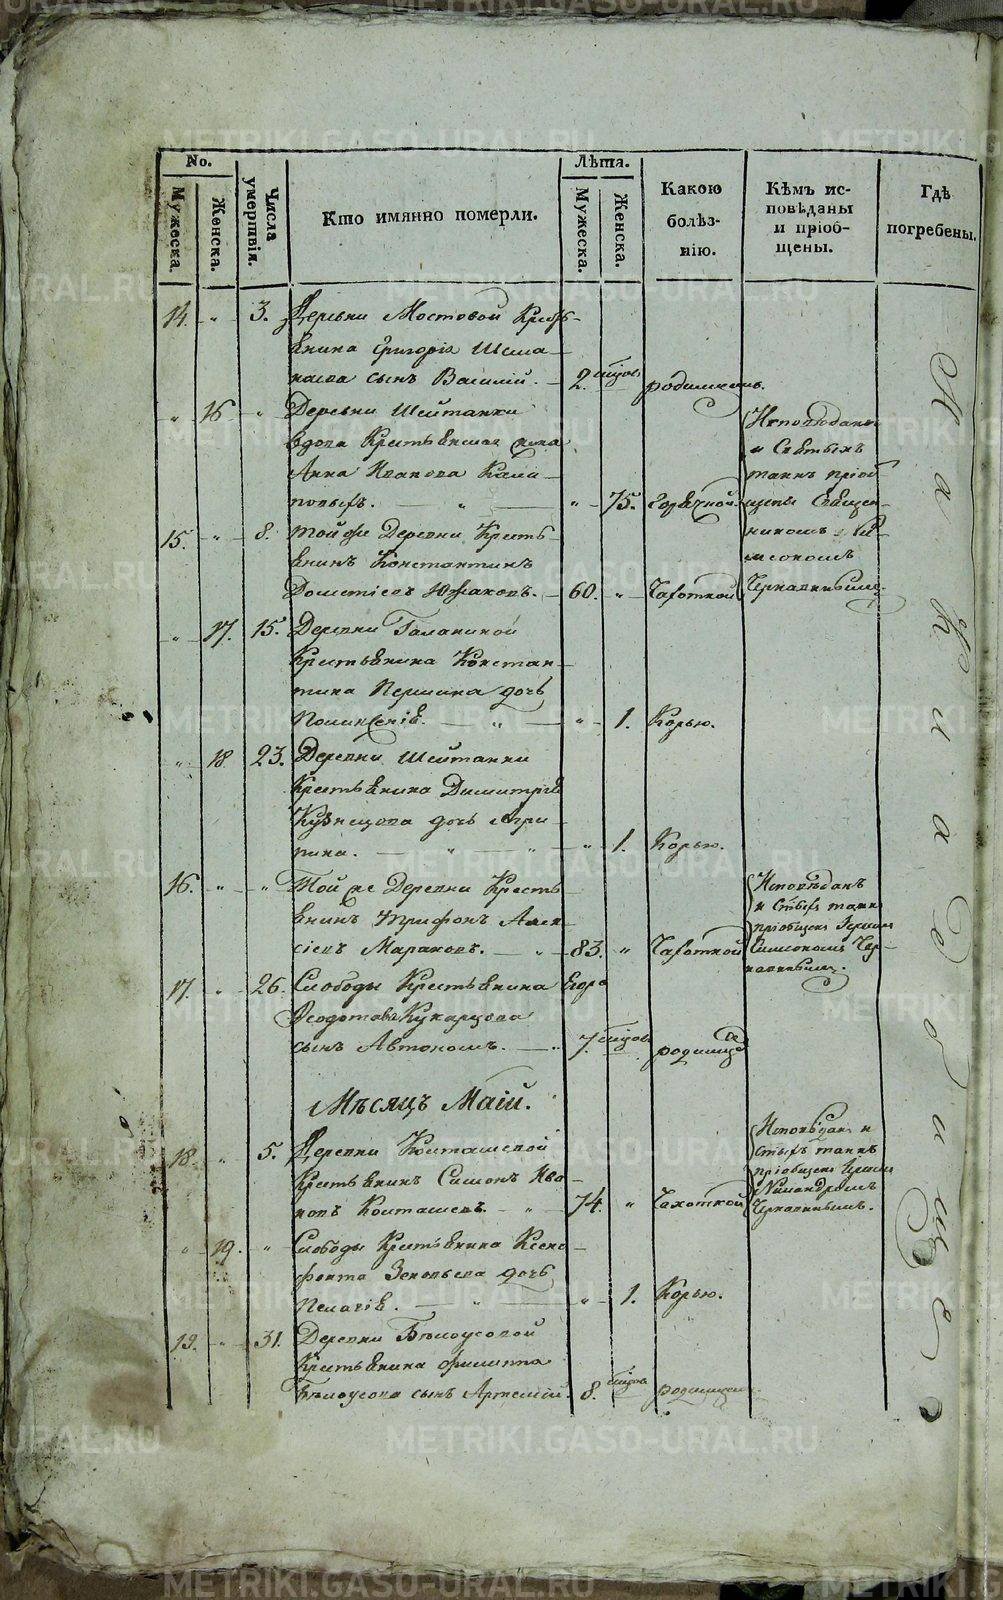 METRIKI.GASO-URAL.RU
No.
Мужеска.
Женска.
Числа умертвія.
Кто имянно померли.
Лѣта.
Мужеска.
Женска.
Какою болѣз-
нію.
Кѣмъ ис-
повѣданы
и пріоб-
щены.
Гдѣ
погребены.
14. " 3. Деревни Мостовой Кресть-
янина Григорія
сынъ Василій. 2. родимцемъ.
" 16. " Деревни Шейтанки
вдова Крестьянская жена
Анна Иванова
" 75. Горячкой.
Исповѣданы
и Святыхъ
таинъ пріоб
щены Священ
никомъ
Чернавинымъ.
15. " 8. Той же Деревни Кресть-
янинъ Константинъ
Дометіевъ Южаковъ. 60. " Чахоткой
" 17. 15. Деревни Галаниной
Крестьянина Констан-
тина Першина дочь
Поликсенія. " " 1. Корью.
" 18 23. Деревни Шейтанки
Крестьянина Димитрія
Кузнецова дочь Агри-
пина. " " " 1. Корью.
16. " " Той же Деревни Кресть
янинъ Трифонъ Алек
сіевъ Мараковъ. " 83. " Чахоткой
Исповѣданъ
и Стыхъ таинъ
пріобщенъ Іереемъ
Симеономъ Чер-
навинымъ.
17. " 26. Слободы Крестьянина Егора
Ѳеодотова Кукарцова
сынъ Автономъ. " 7. родимце
Мѣсяцъ Маій.
18. " 5. Деревни Косташевой
Крестьянинъ Симонъ Ива-
новъ Косташевъ. " 74. " Чахоткой
Исповѣданъ и
Стыхъ таинъ
пріобщенъ Іереемъ
Никандромъ
Чернавинымъ.
" 19. " Слободы Крестьянина Ксено-
фонта Зеновьева дочь
Пелагія. " " 1. Корью.
19. " 31. Деревни Бѣлоусовой
Крестьянина Филиппа
Бѣлоусова сынъ Артемій. 8. родимцемъ
На кладбище